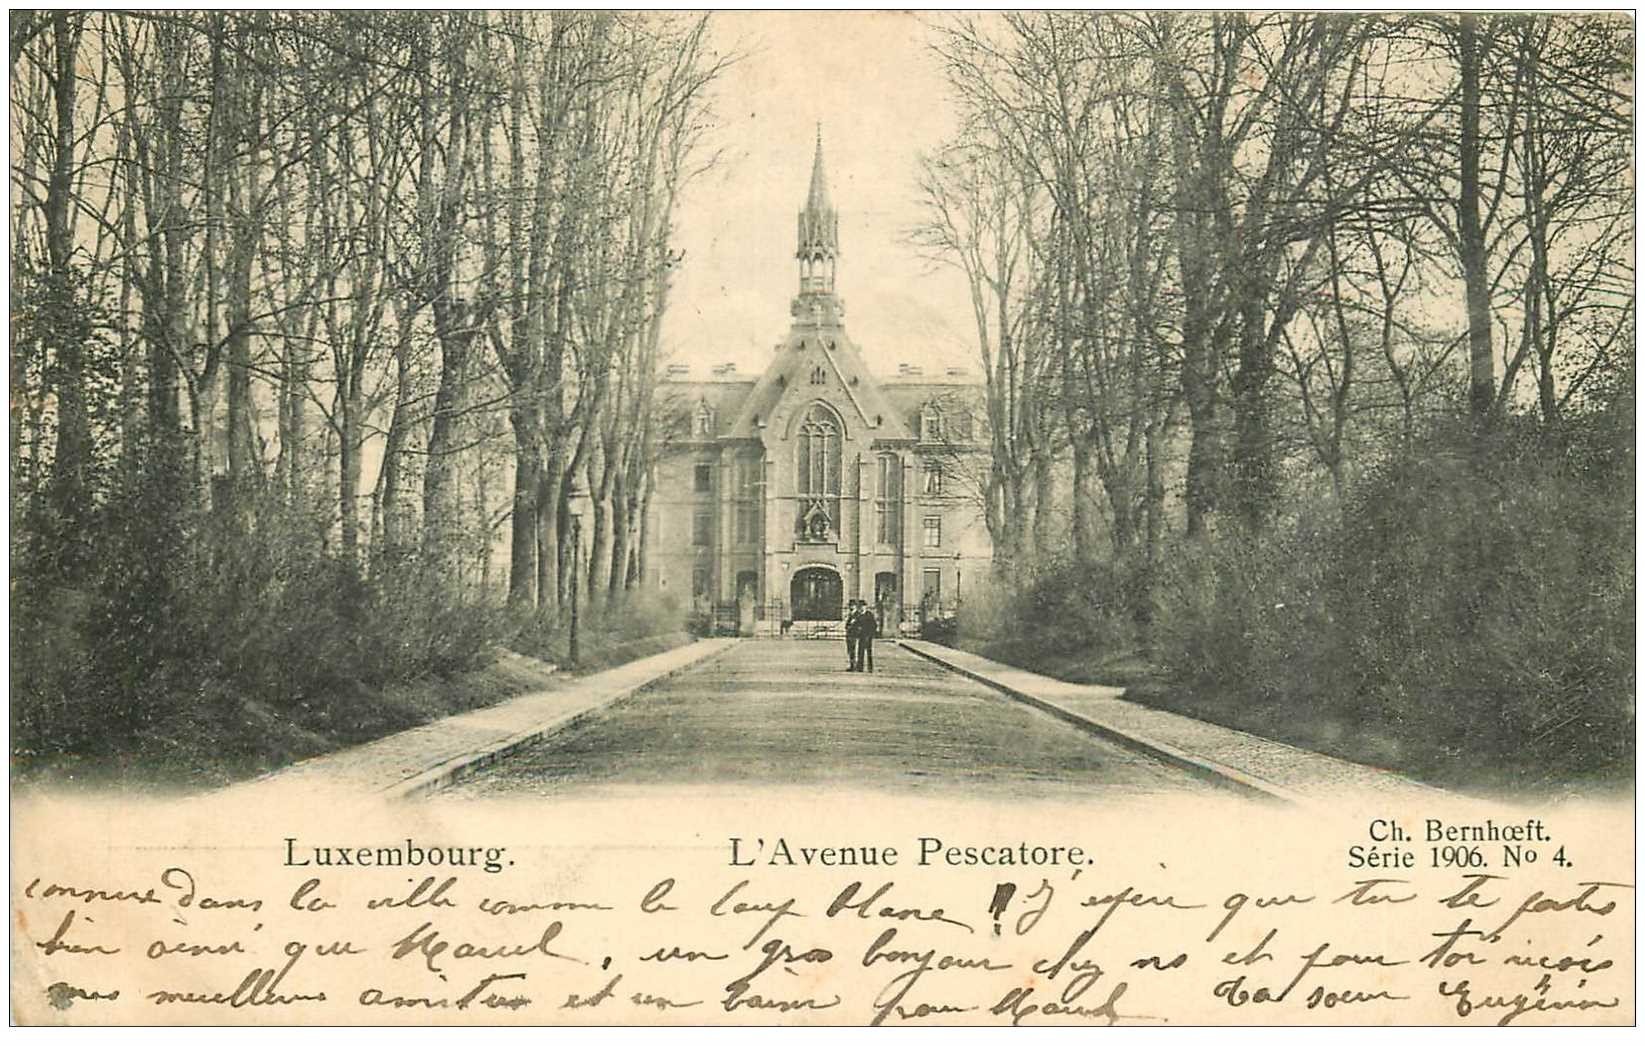 Luxembourg. L'Avenue Pescatore.
Ch. Bernhœft.
Série 1906. No 4.
connue dans la ville comme le loup blanc ! J'espère que tu te portes
bien ainsi que Marcel, un gros bonjour chez ns et pour toi reçois
mes meilleures amitiés et un baiser pour Marcel. Ta soeur Eugénie